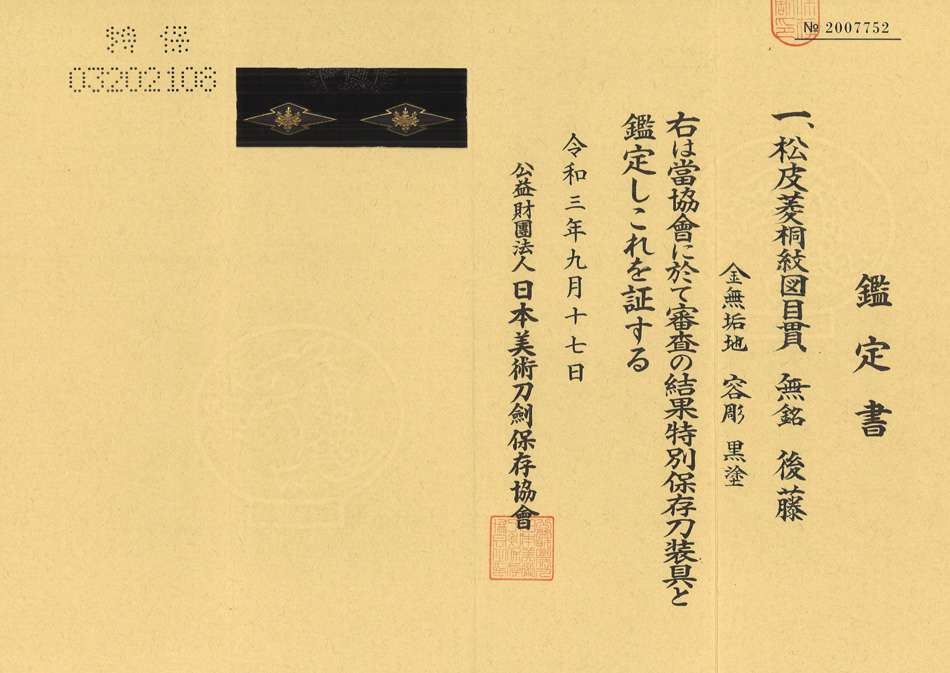 № 2007752
鑑定書
一、松皮菱桐紋図目貫 無銘 後藤
金無垢地 容彫 黒塗
右は當協會に於て審査の結果特別保存刀装具と
鑑定しこれを証する
令和三年九月十七日
公益財團法人 日本美術刀劍保存協會
特保
03202108